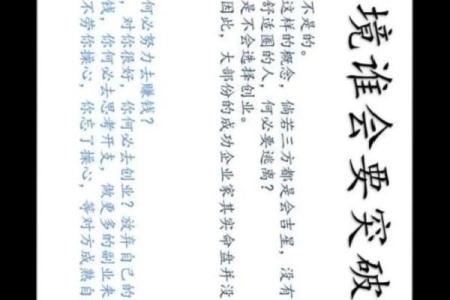 境谁会要突破
不是的。
这样的概念，倘若三方都是会吉星，没有
舒适圈的人，何必要逃离？
是不会选择创业。
因此，大部份的成功企业家其实命盘并没
何必努力去赚钱？
，对你很好，你何必去创业？放弃自己的
钱，你何必去思考开支，做更多的副业来
不劳你操心，你忘了操心，等对方成熟自